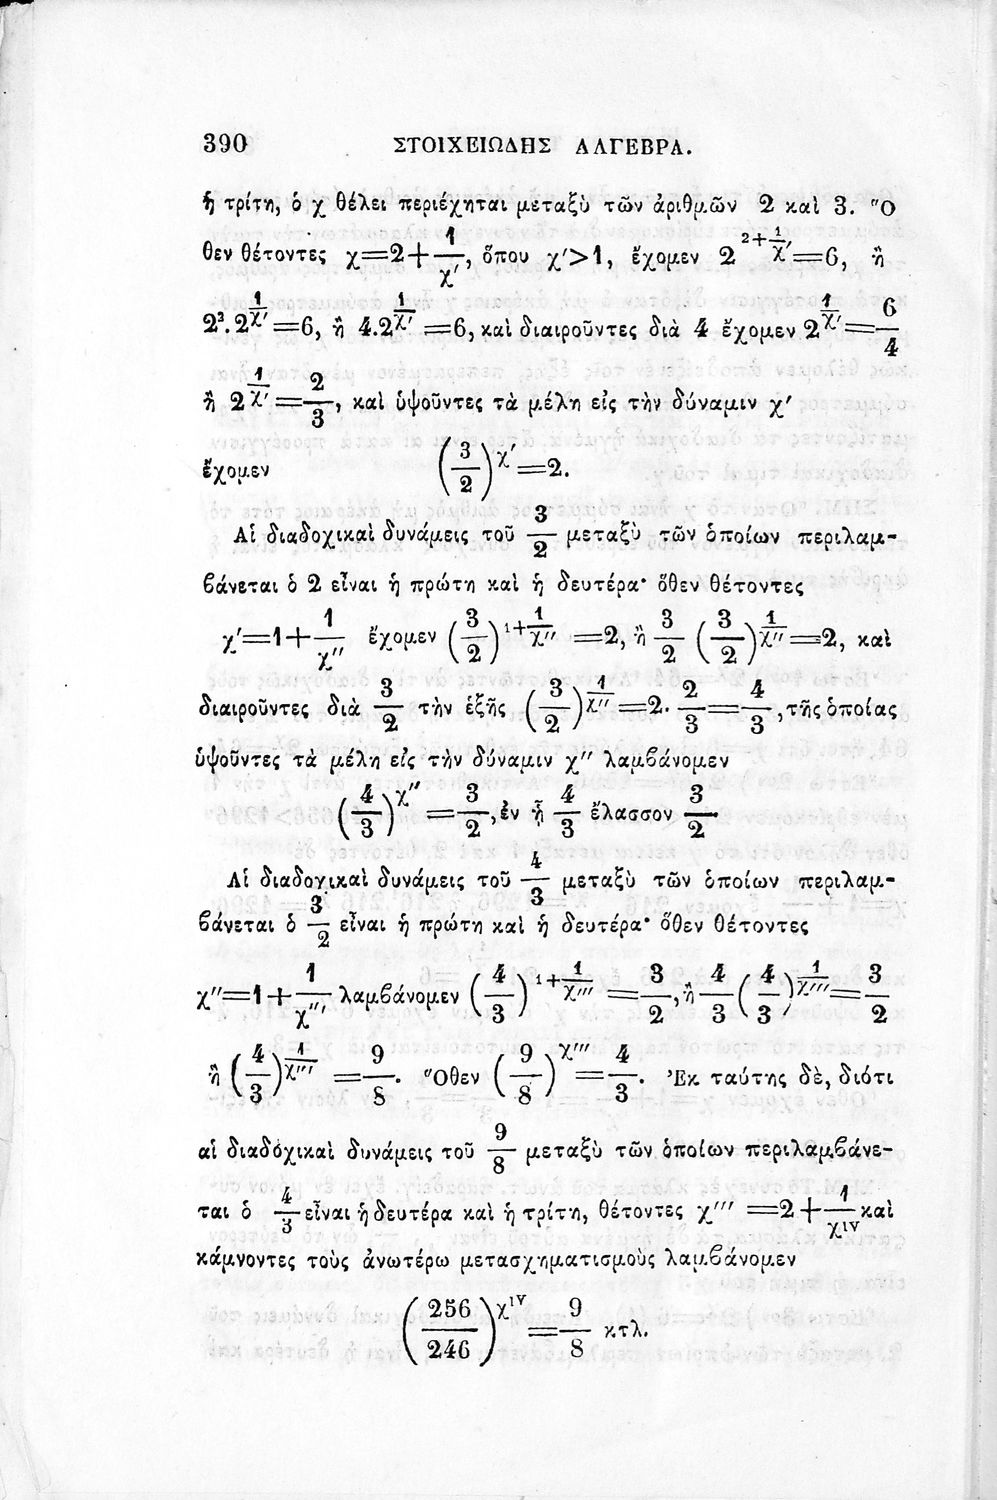 390 ΣΤΟΙΧΕΙΩΔΗΣ ΑΛΓΕΒΡΑ.
ἡ τρίτη, ὁ χ θέλει περιέχηται μεταξὺ τῶν ἀριθμῶν 2 καὶ 3. Ὅ
θεν θέτοντες χ=2+1/χ′, ὅπου χ′>1, ἔχομεν 2^(2+1/χ′)=6, ἢ
2².2^(1/χ′)=6, ἢ 4.2^(1/χ′)=6, καὶ διαιροῦντες διὰ 4 ἔχομεν 2^(1/χ′)=6/4
ἢ 2^(1/χ′)=2/3, καὶ ὑψοῦντες τὰ μέλη εἰς τὴν δύναμιν χ′
ἔχομεν (3/2)^χ′=2.
Αἱ διαδοχικαὶ δυνάμεις τοῦ 3/2 μεταξὺ τῶν ὁποίων περιλαμ-
βάνεται ὁ 2 εἶναι ἡ πρώτη καὶ ἡ δευτέρα· ὅθεν θέτοντες
χ′=1+1/χ″ ἔχομεν (3/2)^(1+1/χ″)=2, ἢ 3/2 (3/2)^(1/χ″)=2, καὶ
διαιροῦντες διὰ 3/2 τὴν ἑξῆς (3/2)^(1/χ″)=2.2/3=4/3, τῆς ὁποίας
ὑψοῦντες τὰ μέλη εἰς τὴν δύναμιν χ″ λαμβάνομεν
(4/3)^χ″=3/2, ἐν ᾗ 4/3 ἔλασσον 3/2.
Αἱ διαδοχικαὶ δυνάμεις τοῦ 4/3 μεταξὺ τῶν ὁποίων περιλαμ-
βάνεται ὁ 3/2 εἶναι ἡ πρώτη καὶ ἡ δευτέρα· ὅθεν θέτοντες
χ″=1+1/χ‴, λαμβάνομεν (4/3)^(1+1/χ‴)=3/2, ἢ 4/3(4/3)^(1/χ‴)=3/2
ἢ (4/3)^(1/χ‴)=9/8. Ὅθεν (9/8)^χ‴=4/3. Ἐκ ταύτης δὲ, διότι
αἱ διαδόχικαὶ δυνάμεις τοῦ 9/8 μεταξὺ τῶν ὁποίων περιλαμβάνε-
ται ὁ 4/3 εἶναι ἡ δευτέρα καὶ ἡ τρίτη, θέτοντες χ‴=2+1/χ^IV καὶ
κάμνοντες τοὺς ἀνωτέρω μετασχηματισμοὺς λαμβάνομεν
(256/246)^χ^IV=9/8 κτλ.